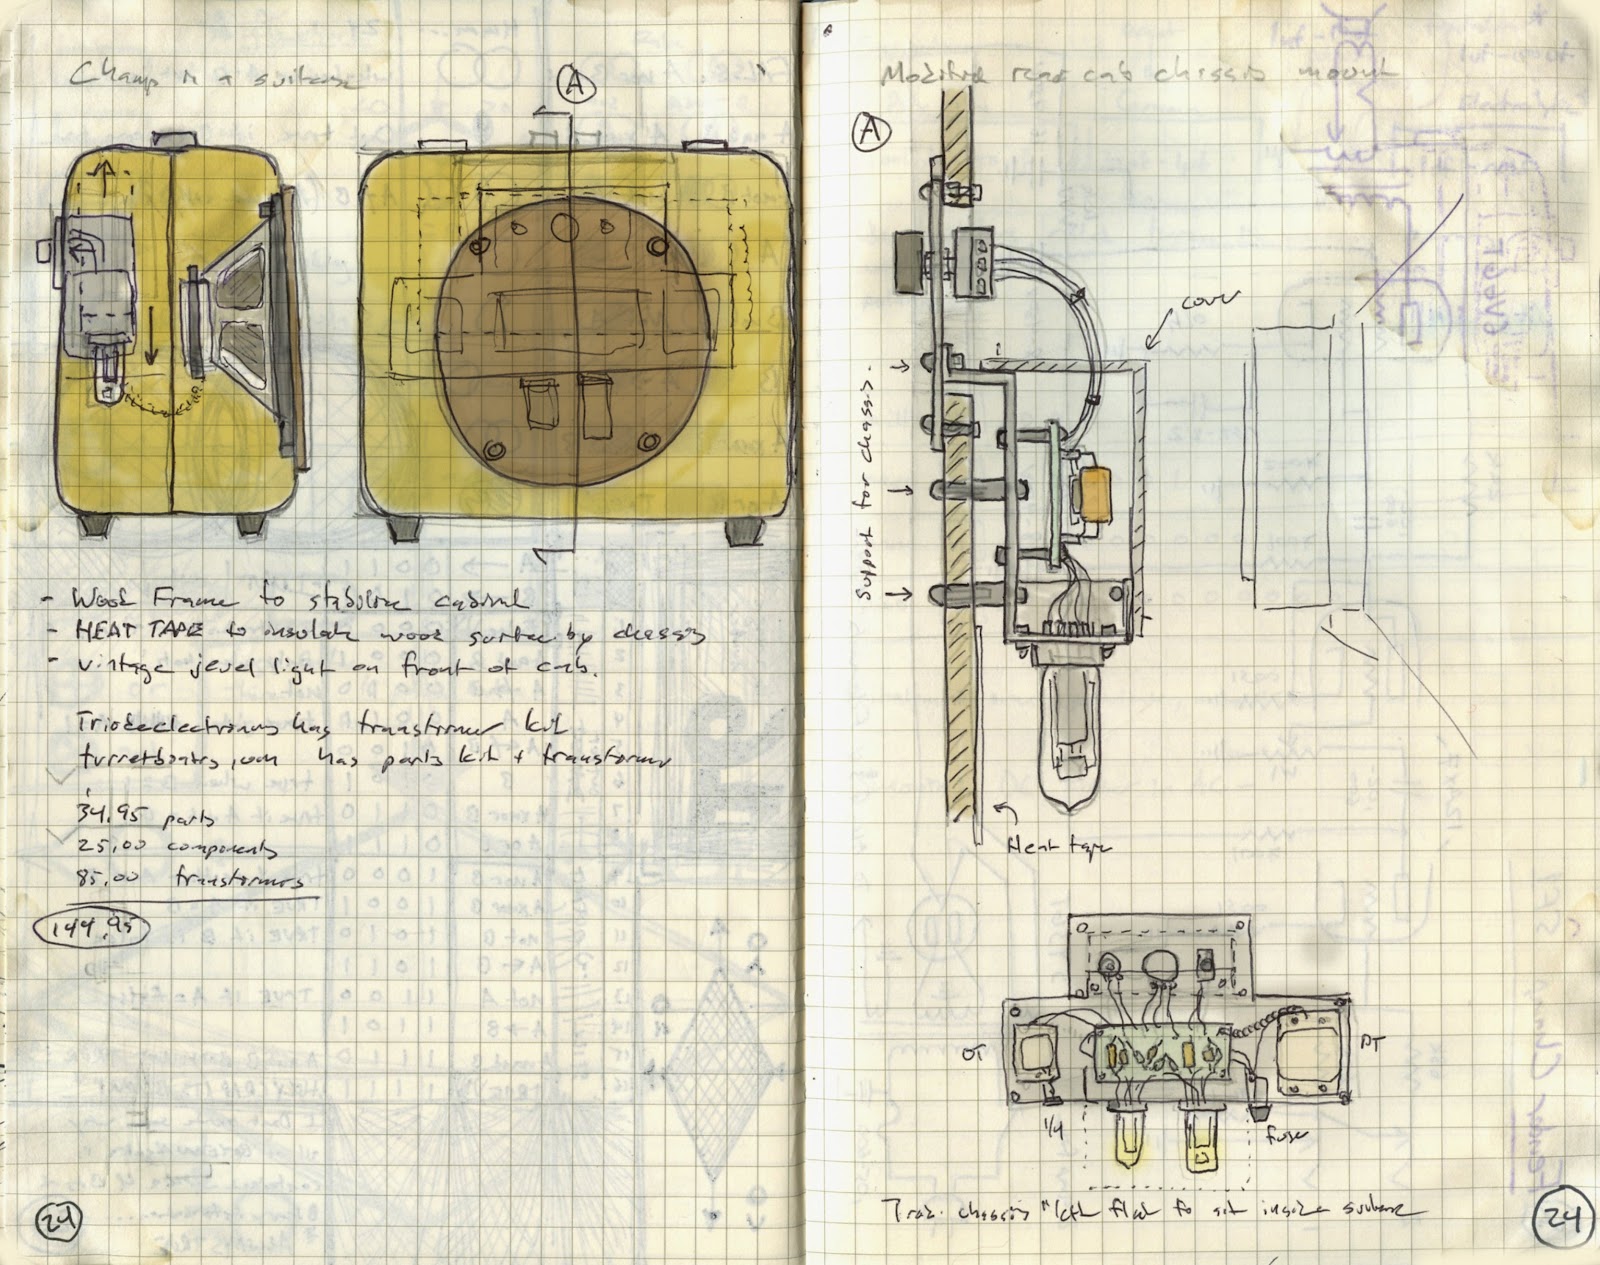 Champ in a suitcase
A
- Wood Frame to stabilize cabinet
- HEAT TAPE to insulate wood surface by chassis
- vintage jewel light on front of cab.
Triodeelectronics has transformer kit
turretboards.com has parts kit + transformer
34.95 parts
25.00 components
85.00 transformers
144.95
24
Modified rear cab chassis mount
A
cover
Support for chassis.
Heat tape
OT
PT
1/4
fuse
Trad. chassis left flat to sit inside suitcase
24